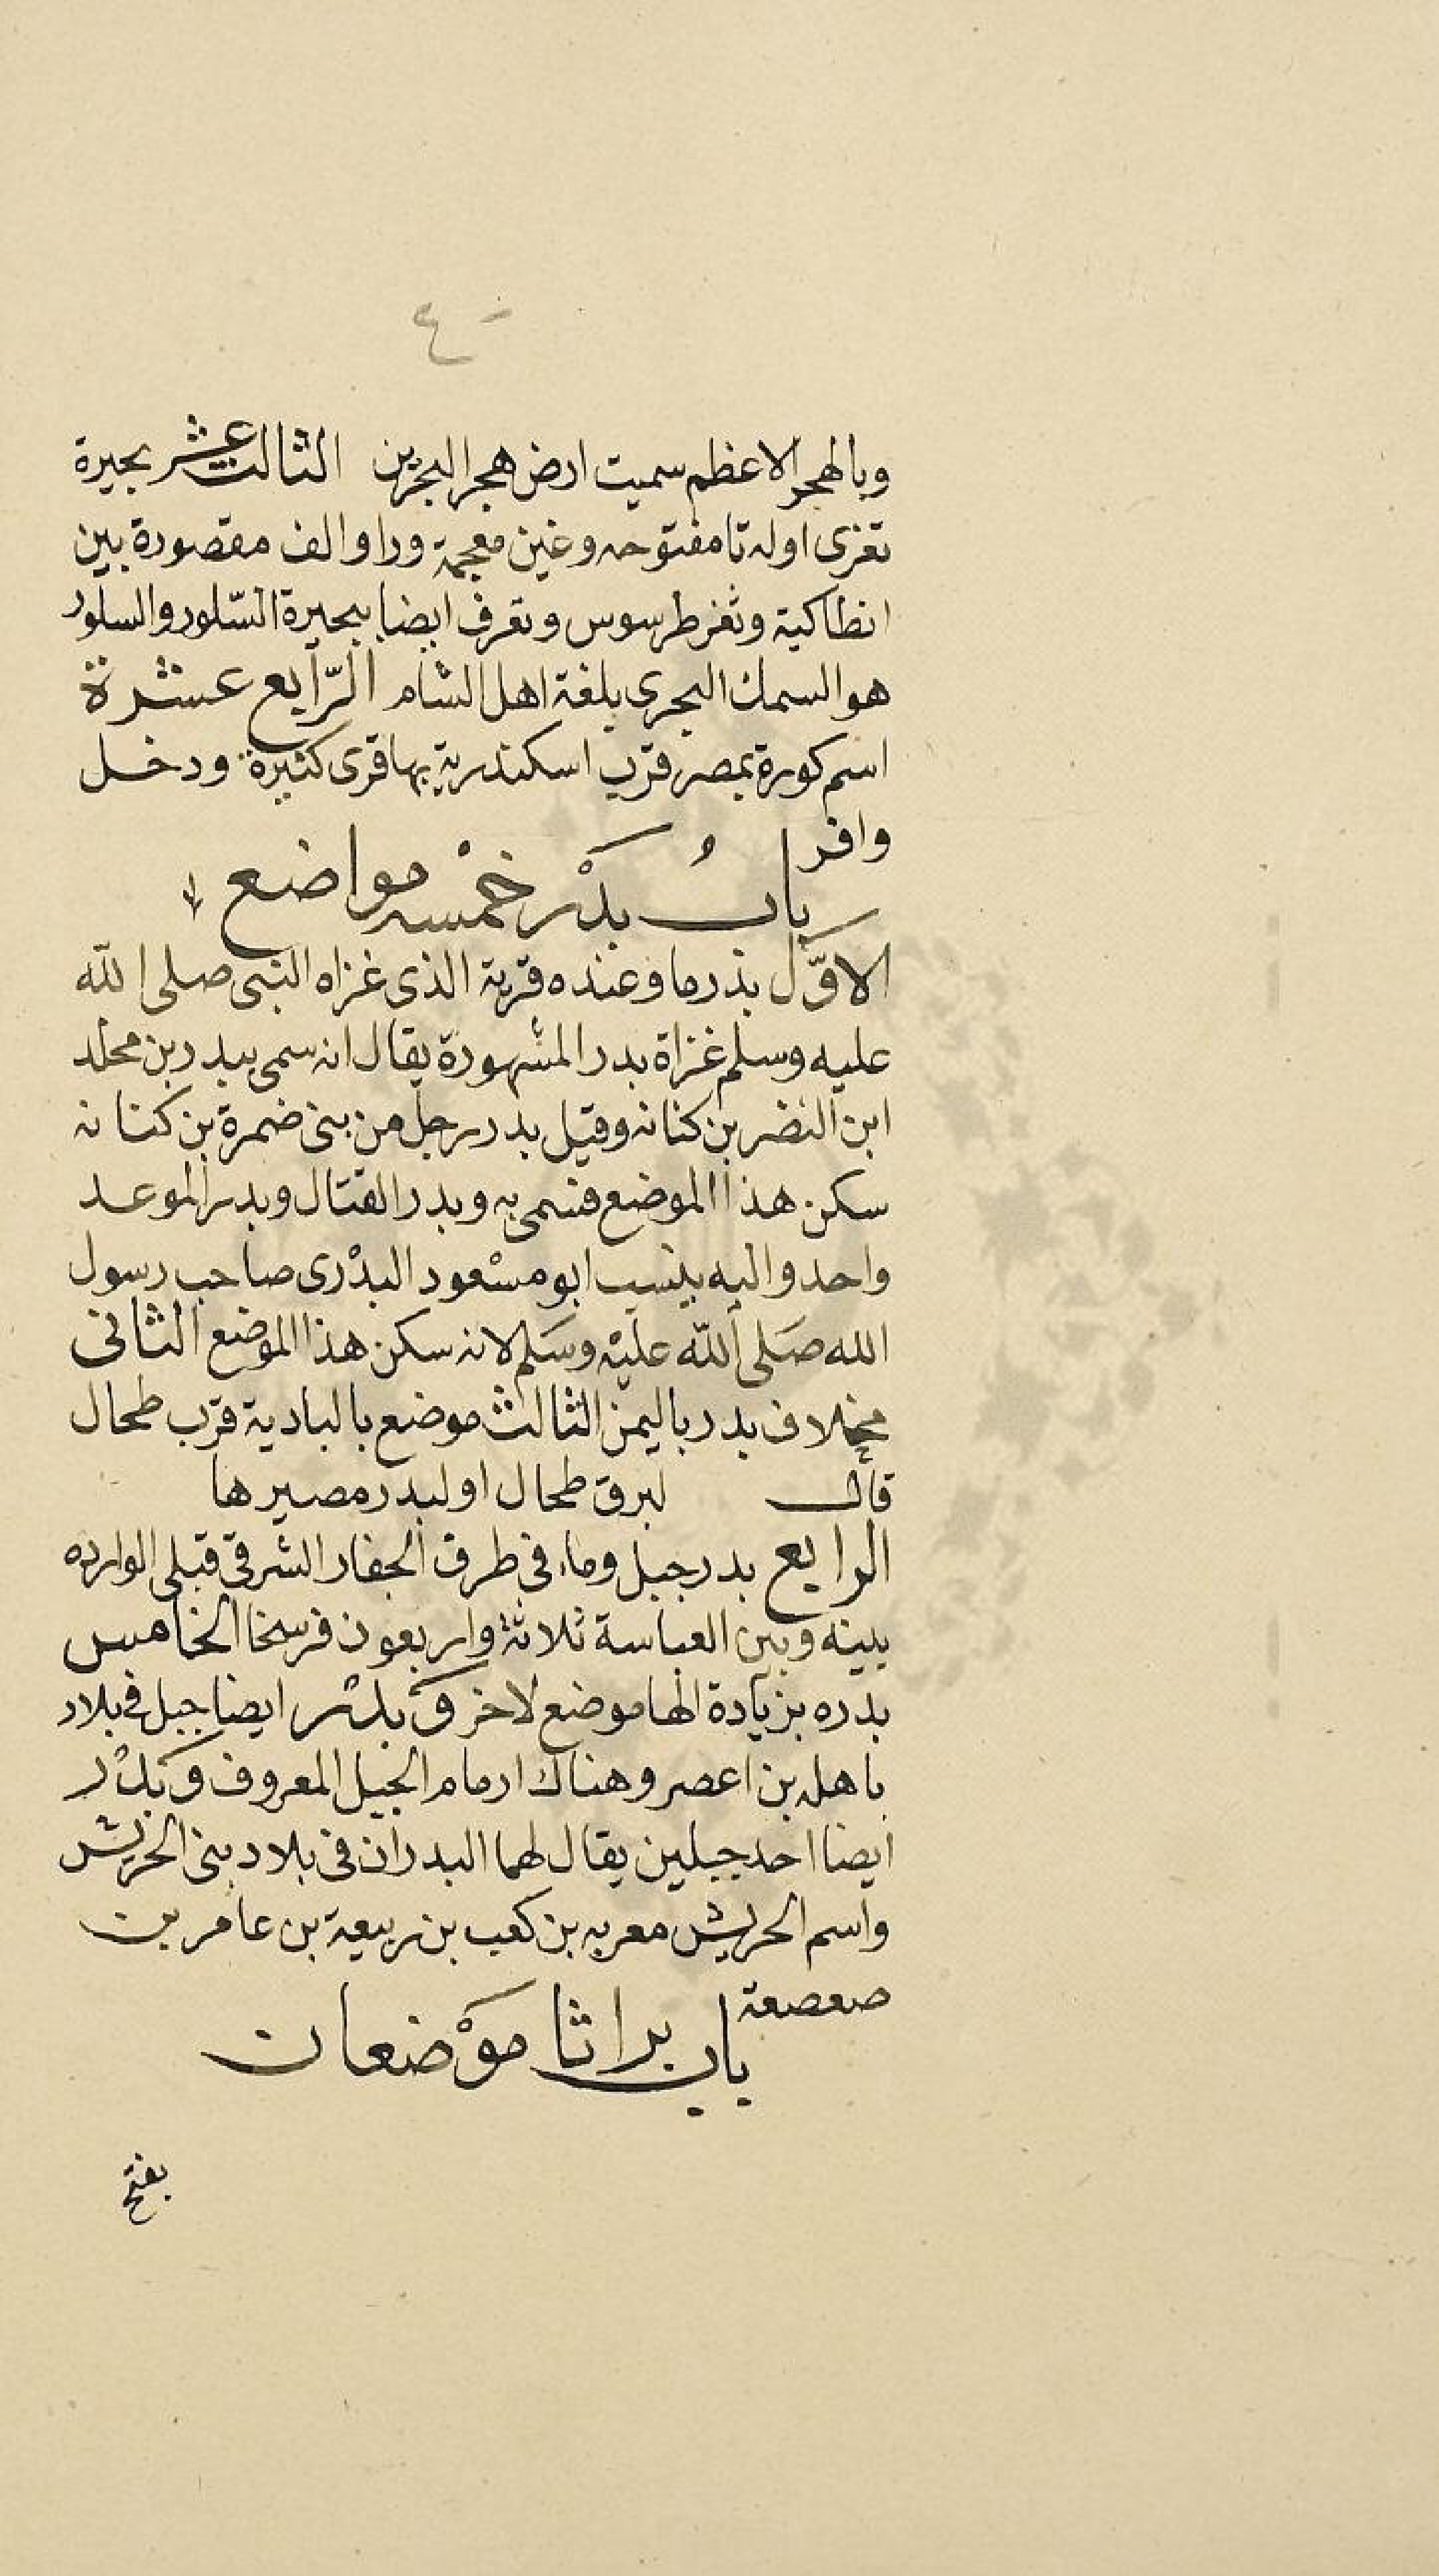 ٤٠
وبالهجر الاعظم سميت ارض هجر البحرين الثالث عشر بحيرة
تغزى اوله تا مفتوحه وغين معجمة ورا والف مقصورة بين
انطاكية وثغر طرسوس وتعرف ايضا ببحيرة السّلور والسلور
هو السمك البحرى بلغة اهل الشام الرّابع عشرة
اسم كورة بمصر قرب اسكندرية بها قرى كثيرة ودخل
وافر
بابُ بدْر خمْسه مواضع
الاوّل بذر ما وعنده قرية الذى غزاه النبى صلى الله
عليه وسلم غزاة بدر المشهورة يقال انه سمى ببدر بن مخلد
ابن النضر بن كنانه وقيل بدر رجل من بنى ضمرة بن كنانه
سكن هذا الموضع فسمى به وبدر القتال وبدر الموعد
واحد واليه ينسب ابو مسْعود البدْرى صاحب رسول
الله صَلى الله عليْه وسَلم لانه سكن هذا الموضع الثانى
مخلاف بدر باليمن الثالث موضع بالبادية قرب طحال
قال لبرق طحال او لبدر مصيرها
الرابع بدر جبل وماء فى طرف الجفار الشرقى قبلى الوارده
بينه وبين العباسة ثلاثة واربعون فرسخا الخامس
بدره بزيادة الها موضع لاخر وَبدر ايضا جبل فى بلاد
باهله بن اعصر وهناك ارمام الجبل المعروف وَبدْر
ايضا احد جبلين يقال لهما البدران فى بلاد بنى الحريش
واسم الحريش معربه بن كعب بن ربيعة بن عامر بن
صعصعة
باب براثا موْضعان
بفتح